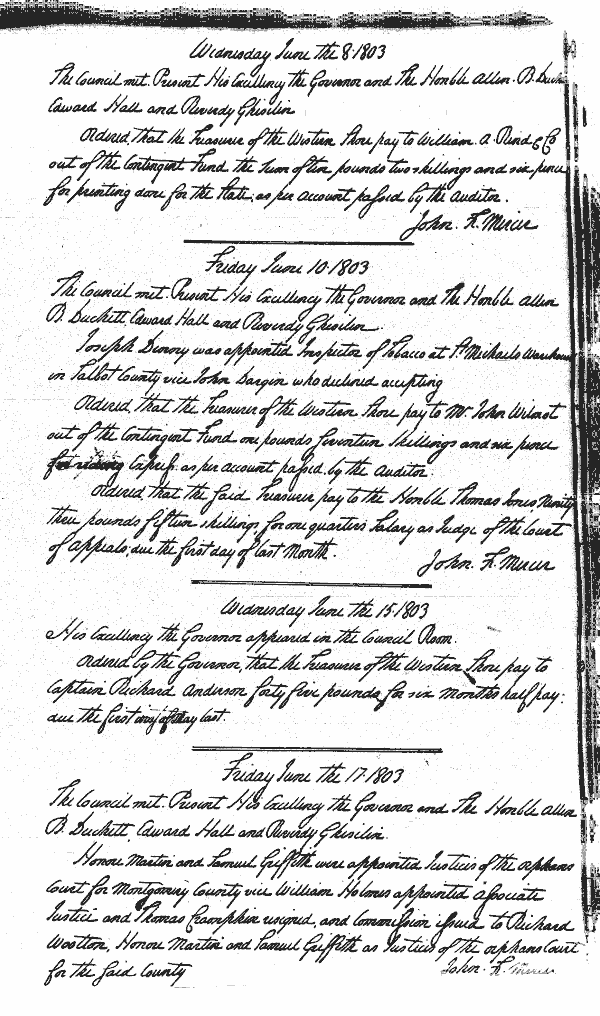 Wednesday June the 8. 1803
The Council met. Present His Excellency the Governor and The Honble Allen. B. Duckett
Edward Hall and Reverdy Ghiselin
Ordered, that the Treasurer of the Western Shore pay to William. A. Rind & Co
out of the Contingent Fund the Sum of ten pounds two shillings and six pence
for printing done for the State, as per account passed by the Auditor.
John. F. Mercer
Friday June 10. 1803
The Council met. Present His Excellency the Governor and The Honble Allen
B. Duckett, Edward Hall and Reverdy Ghiselin.
Joseph Denny was appointed Inspector of Tobacco at St. Michaels Warehouse
in Talbot County vice John Dorgin who declined accepting
Ordered, that the Treasurer of the Western Shore pay to Mr. John Wilmot
out of the Contingent Fund one pounds seventeen shillings and six pence
as per account passed, by the Auditor.
Ordered that the said Treasurer pay to the Honble Thomas Jones Ninety
three pounds fifteen shillings for one quarter's Salary as Judge of the Court
of appeals, due the first day of last Month.
John. F. Mercer
Wednesday June the 15. 1803
His Excellency the Governor appeared in the Council Room.
Ordered by the Governor, that the Treasurer of the Western Shore pay to
Captain Richard Anderson forty five pounds, for six months half pay:
due the first day of May last.
Friday June the 17. 1803
The Council met. Present His Excellency the Governor and The Honble Allen
B. Duckett, Edward Hall and Reverdy Ghiselin.
Honore Martin and Samuel Griffith were appointed Justices of the orphans
Court for Montgomery County vice William Holmes appointed associate
Justice and Thomas Cramphin resigned, and Commission issued to Richard
Wootton, Honore Martin and Samuel Griffith as Justices of the orphans Court
for the said County
John. F. Mercer